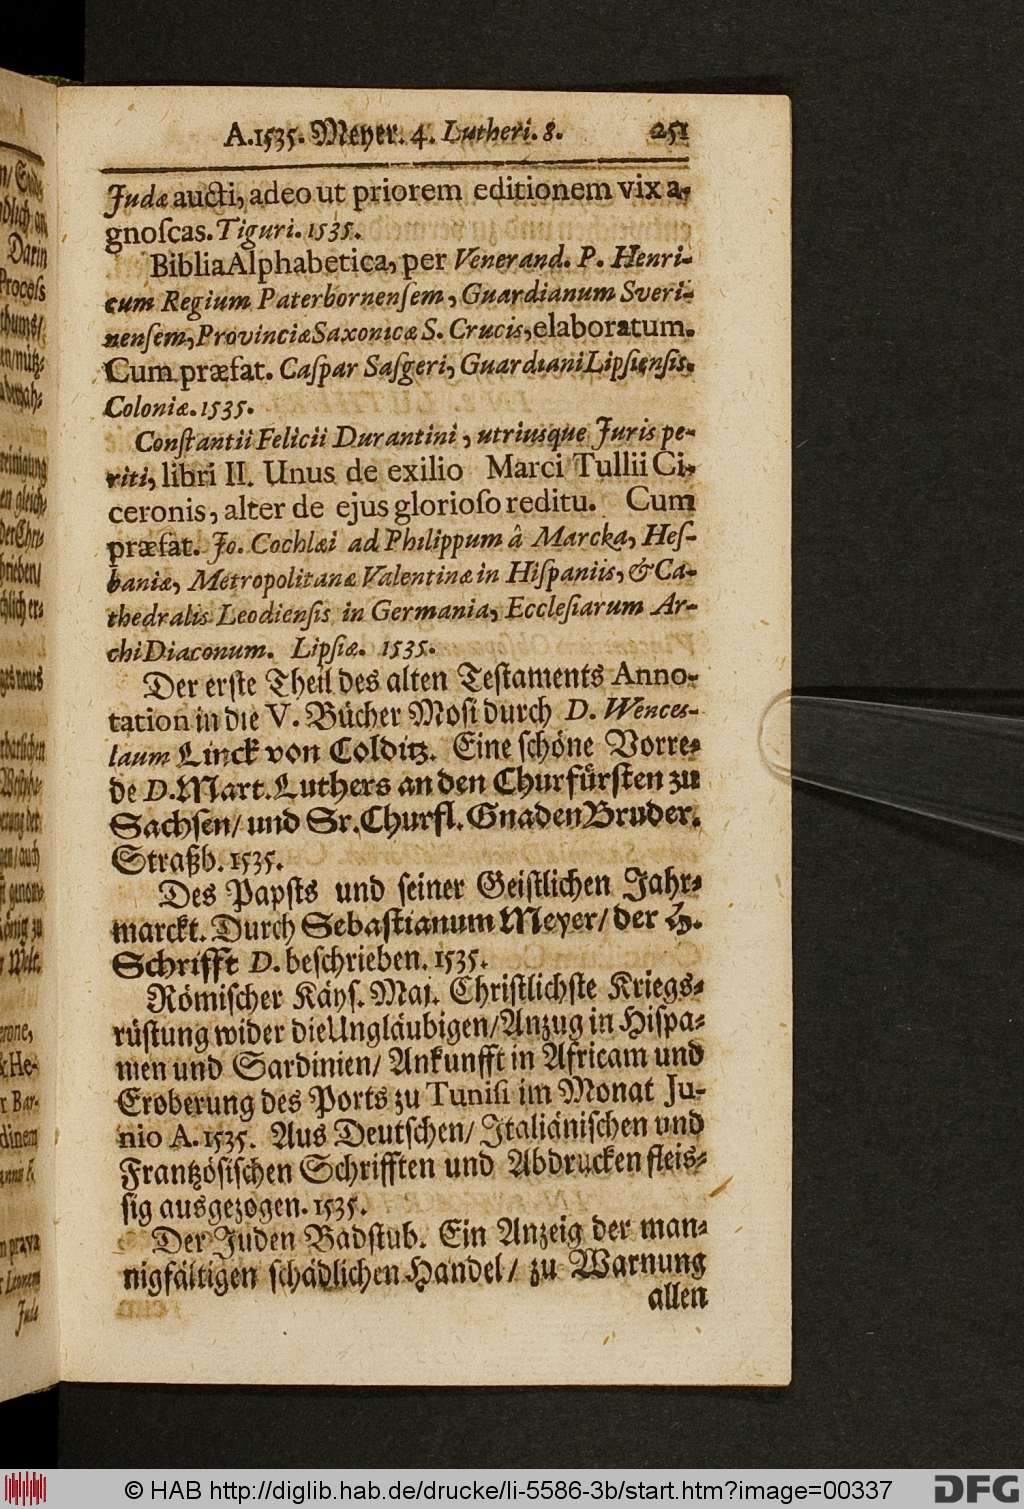 A. 1535. Meyer. 4. Lutheri. 8. 251
Judæ aucti, adeo ut priorem editionem vix a-
gnoſcas. Tiguri. 1535.
Biblia Alphabetica, per Venerand. P. Henri-
cum Regium Paterbornenſem, Guardianum Sveri-
nenſem, Provinciæ Saxonicæ S. Crucis, elaboratum.
Cum præfat. Caſpar Saſgeri, Guardiani Lipſienſis.
Coloniæ. 1535.
Conſtantii Felicii Durantini, utriusque Juris pe-
riti, libri II. Unus de exilio Marci Tullii Ci-
ceronis, alter de ejus glorioſo reditu. Cum
præfat. Jo. Cochlæi ad Philippum â Marcka, Heſ-
baniæ, Metropolitanæ Valentinæ in Hiſpaniis, & Ca-
thedralis Leodienſis in Germania, Eccleſiarum Ar-
chi Diaconum. Lipſiæ. 1535.
Der erſte Theil des alten Teſtaments Anno-
tation in die V. Bücher Moſi durch D. Wences-
laum Linck von Colditz. Eine ſchöne Vorre-
de D. Mart. Luthers an den Churfürſten zu
Sachſen/ und Sr. Churfl. Gnaden Bruder.
Straßb. 1535.
Des Papſts und ſeiner Geiſtlichen Jahr-
marckt. Durch Sebaſtianum Meyer/ der H.
Schrifft D. beſchrieben. 1535.
Römiſcher Käyſ. Maj. Chriſtlichſte Kriegs-
rüſtung wider die Ungläubigen/ Anzug in Hiſpa-
nien und Sardinien/ Ankunfft in Africam und
Eroberung des Ports zu Tuniſi im Monat Ju-
nio A. 1535. Aus Deutſchen/ Italiäniſchen und
Frantzöſiſchen Schrifften und Abdrucken fleiſ-
ſig ausgezogen. 1535.
Der Juden Badſtub. Ein Anzeig der man-
nigfältigen ſchädlichen Handel/ zu Warnung
allen
© HAB http://diglib.hab.de/drucke/li-5586-3b/start.htm?image=00337
DFG